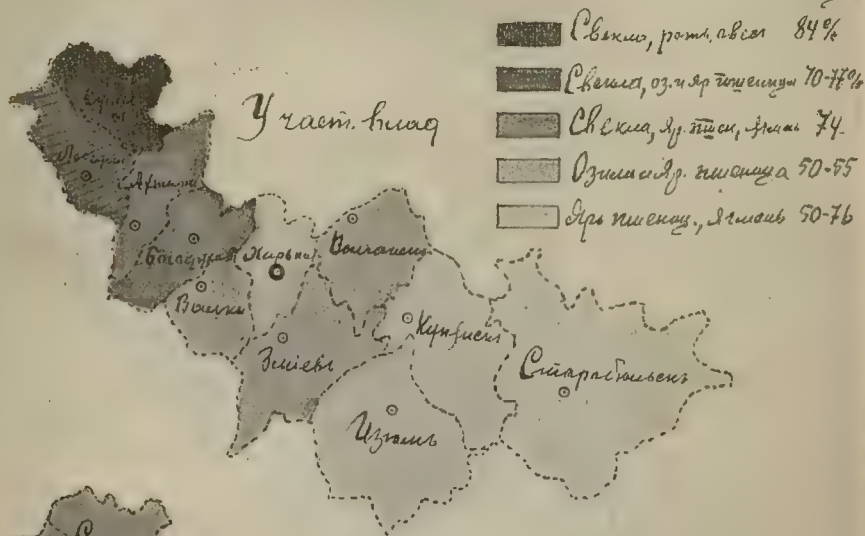 Свекла, рожь, овес 84%
Свекла, оз. и яр пшеница 70-77%
Свекла, яр. пшен, ячмень 74
Озимая яр. пшеница 50-55
Ярь пшениц., ячмень 50-76
Участ. влад
Лебедин
Ахтырка
Харьков
Волчанскъ
Валки
Зміевъ
Купянскъ
Старобѣльскъ
Изюмъ
С